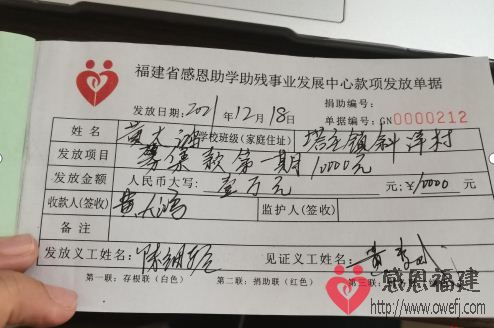 福建省感恩助学助残事业发展中心款项发放单据
发放日期：2021年12月18日 捐助编号：
单据编号：GN0000212
姓名 黄大鸿 学校班级(家庭住址) 塔庄镇斜洋村
发放项目 筹集款第一期10000元
发放金额 人民币大写：壹万元 元；¥10000 元
收款人(签收) 黄大鸿 监护人(签收)
备注
发放义工姓名： 见证义工姓名：黄
第一联：存根联（白色） 第二联：捐助联（红色） 第三联：
感恩福建
http://www.owefj.com